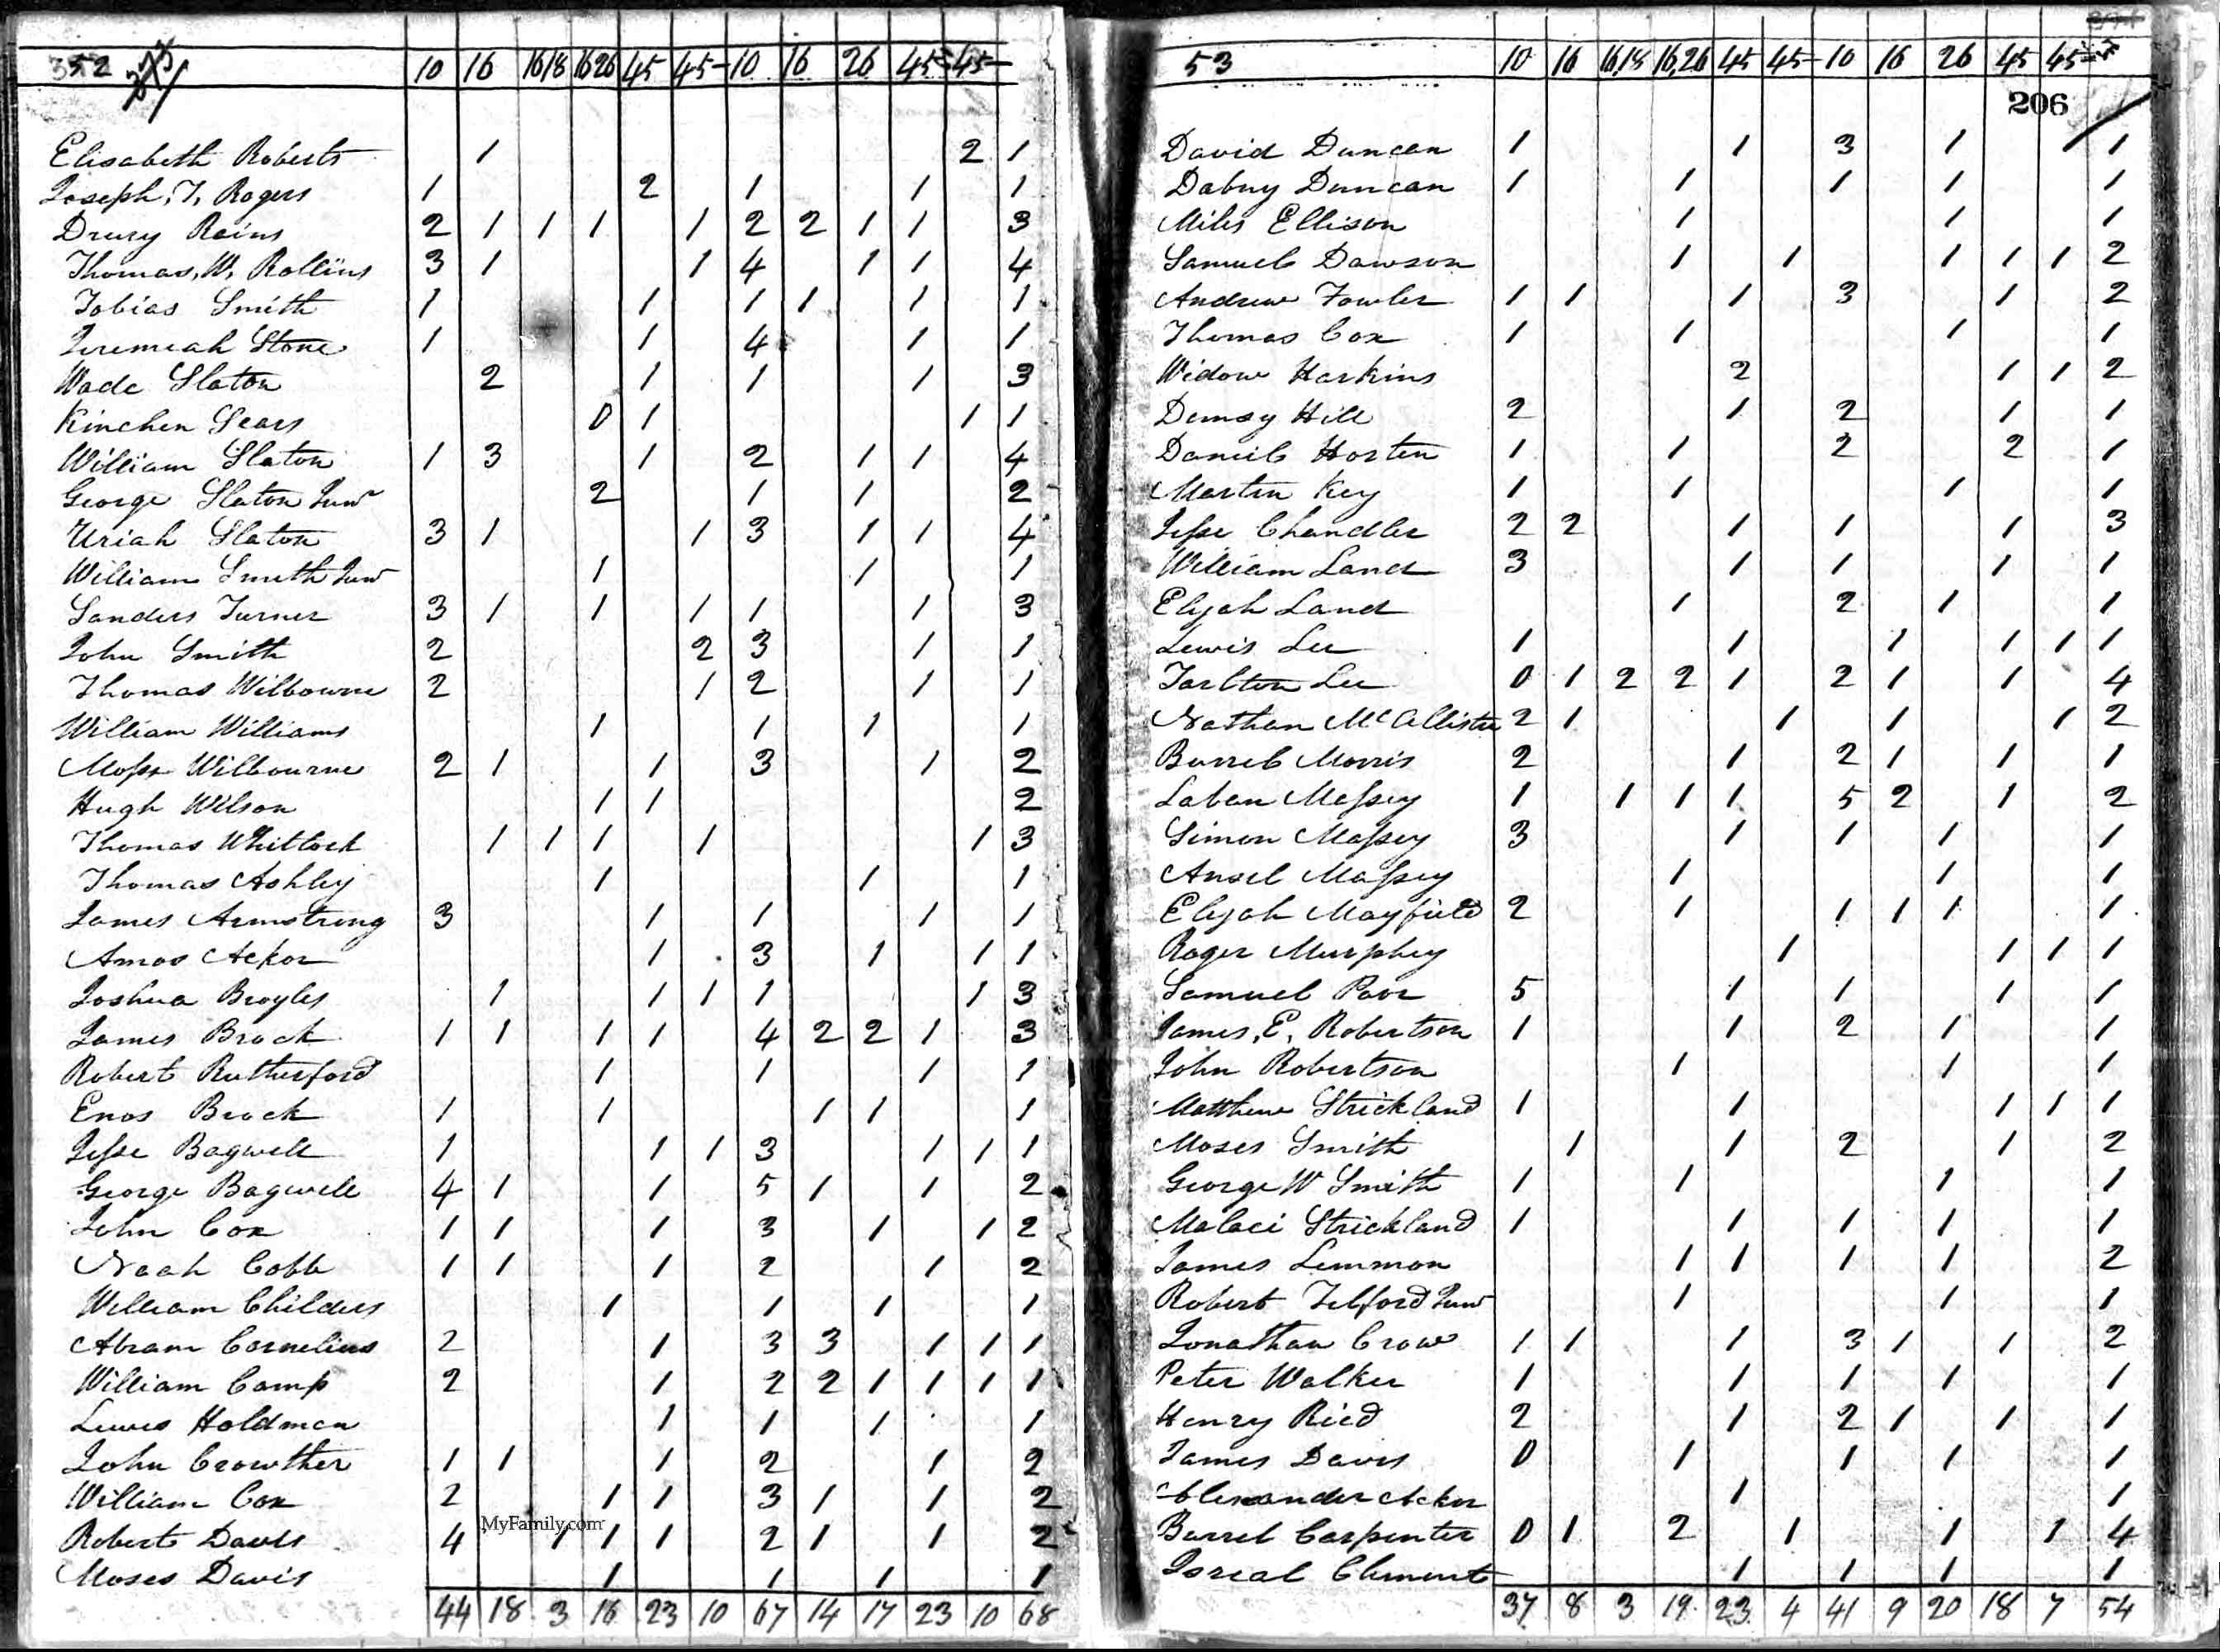 352 273 10 16 1618 1626 45 45- 10 16 26 45 45-
Elisabeth Roberts 1 2 1
Joseph, T, Rogers 1 2 1 1 1
Drury Rains 2 1 1 1 1 2 2 1 1 3
Thomas, W, Rollins 3 1 1 4 1 1 4
Tobias Smith 1 1 1 1 1 1
Jeremeah Stone 1 1 4 1 1
Wade Slaton 2 1 1 1 3
Kinchen Sears 0 1 1 1
William Slaton 1 3 1 2 1 1 4
George Slaton Junr 2 1 1 2
Uriah Slaton 3 1 1 3 1 1 4
William Smith Junr 1 1 1
Sanders Turner 3 1 1 1 1 1 3
John Smith 2 2 3 1 1
Thomas Wilbourne 2 1 2 1 1
William Williams 1 1 1 1
Moses Wilbourne 2 1 1 3 1 2
Hugh Wilson 1 1 2
Thomas Whitlock 1 1 1 1 1 3
Thomas Ashley 1 1 1
James Armstrong 3 1 1 1 1
Amos Acker 1 3 1 1 1
Joshua Broyles 1 1 1 1 1 3
James Brock 1 1 1 1 4 2 2 1 3
Robert Rutherford 1 1 1 1
Enos Brock 1 1 1 1 1
Jesse Bagwell 1 1 1 3 1 1 1
George Bagwell 4 1 1 5 1 1 2
John Cox 1 1 1 3 1 1 2
Noah Cobb 1 1 1 2 1 2
William Childers 1 1 1 1
Abram Cornelius 2 1 3 3 1 1 1
William Camp 2 1 2 2 1 1 1 1
Lewes Holdman 1 1 1 1
John Crowther 1 1 1 2 1 2
William Cox 2 1 1 3 1 1 2
Robert Davis 4 1 1 1 2 1 1 2
MyFamily.com
Moses Davis 1 1 1 1
44 18 3 16 23 10 67 14 17 23 10 68
53 10 16 16,18 16,26 45 45- 10 16 26 45 45-
206
David Duncan 1 1 3 1 1
Dabny Duncan 1 1 1 1 1
Miles Ellison 1 1 1
Samuel Dawson 1 1 1 1 1 2
Andrew Fowler 1 1 1 3 1 2
Thomas Cox 1 1 1 1
Widow Harkins 2 1 1 2
Demsy Hill 2 1 2 1 1
Daniel Horten 1 1 2 2 1
Martin Key 1 1 1 1
Jesse Chandler 2 2 1 1 1 3
William Land 3 1 1 1 1
Elijah Land 1 2 1 1
Lewis Lee 1 1 1 1 1 1
Tarlton Lee 0 1 2 2 1 2 1 1 4
Nathan McAllister 2 1 1 1 1 2
Burrel Morris 2 1 2 1 1 1
Laban Massey 1 1 1 1 5 2 1 2
Simon Massey 3 1 1 1 1
Ansel Massey 1 1 1
Elijah Mayfield 2 1 1 1 1 1
Roger Murphey 1 1 1 1
Samuel Poor 5 1 1 1 1
James, E, Robertson 1 1 2 1 1
John Robertson 1 1 1
Matthew Strickland 1 1 1 1 1
Moses Smith 1 1 2 1 2
George W Smith 1 1 1 1
Malaci Strickland 1 1 1 1 1
James Lemmon 1 1 1 1 2
Robert Telford Junr 1 1 1
Jonathan Crow 1 1 1 3 1 1 2
Peter Walker 1 1 1 1 1
Henry Ried 2 1 2 1 1 1
James Davis 0 1 1 1 1
Alexander Acker 1 1
Burrel Carpenter 0 1 2 1 1 1 4
Isreal Clements 1 1 1 1
37 8 3 19 23 4 41 9 20 18 7 54